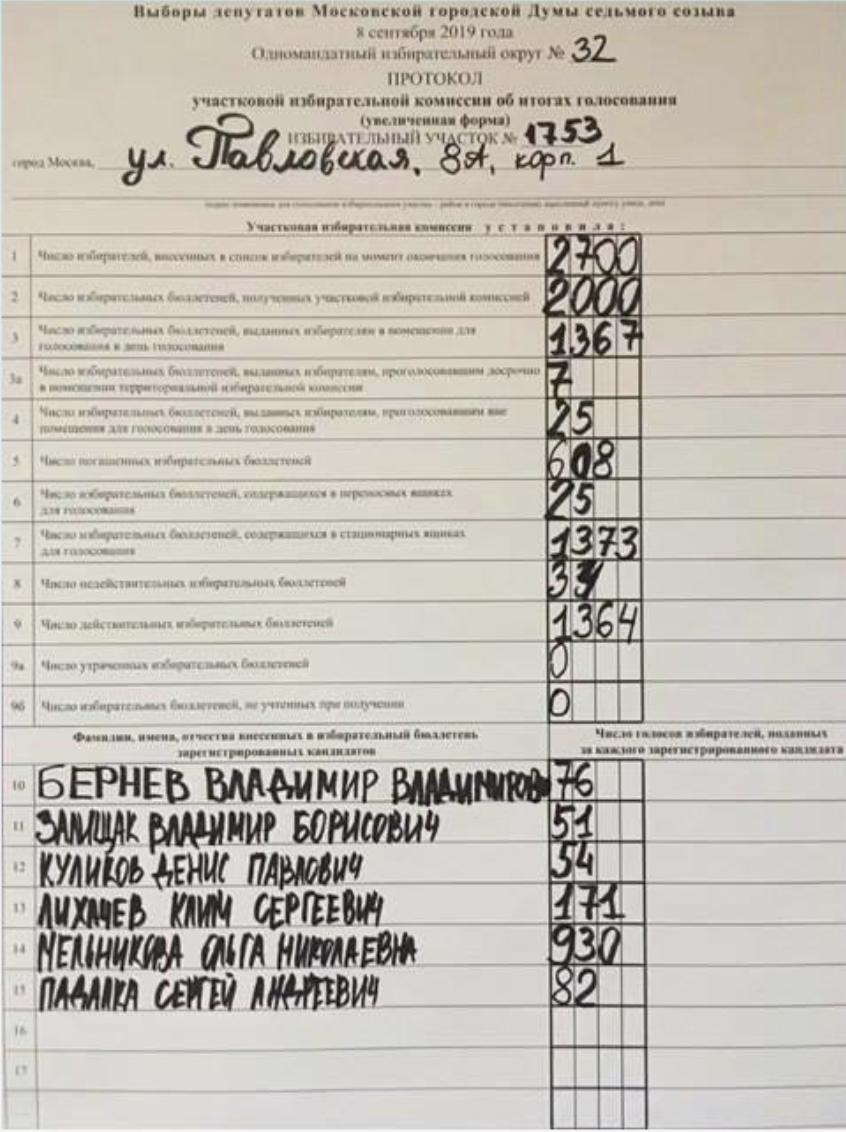 Выборы депутатов Московской городской Думы седьмого созыва
8 сентября 2019 года
Одномандатный избирательный округ № 32
ПРОТОКОЛ
участковой избирательной комиссии об итогах голосования
(увеличенная форма)
ИЗБИРАТЕЛЬНЫЙ УЧАСТОК № 1753
город Москва, ул. Павловская, 8А, корп. 1
Участковая избирательная комиссия установила:
1 Число избирателей, внесенных в список избирателей на момент окончания голосования 2700
2 Число избирательных бюллетеней, полученных участковой избирательной комиссией 2000
3 Число избирательных бюллетеней, выданных избирателям в помещении для
голосования в день голосования 1367
3а Число избирательных бюллетеней, выданных избирателям, проголосовавшим досрочно
в помещении территориальной избирательной комиссии 7
4 Число избирательных бюллетеней, выданных избирателям, проголосовавшим вне
помещения для голосования в день голосования 25
5 Число погашенных избирательных бюллетеней 608
6 Число избирательных бюллетеней, содержащихся в переносных ящиках
для голосования 25
7 Число избирательных бюллетеней, содержащихся в стационарных ящиках
для голосования 1373
8 Число недействительных избирательных бюллетеней
9 Число действительных избирательных бюллетеней 1364
9а Число утраченных избирательных бюллетеней 0
9б Число избирательных бюллетеней, не учтенных при получении 0
Фамилии, имена, отчества внесенных в избирательный бюллетень
зарегистрированных кандидатов
Число голосов избирателей, поданных
за каждого зарегистрированного кандидата
10 БЕРНЕВ ВЛАДИМИР ВЛАДИМИРОВ 76
11 ЗАЛИЩАК ВЛАДИМИР БОРИСОВИЧ 51
12 КУЛИКОВ ДЕНИС ПАВЛОВИЧ 54
13 ЛИХАЧЕВ КЛИМ СЕРГЕЕВИЧ 171
14 МЕЛЬНИКОВА ОЛЬГА НИКОЛАЕВНА 930
15 ПАДАЛКА СЕРГЕЙ АНДРЕЕВИЧ 82
16
17